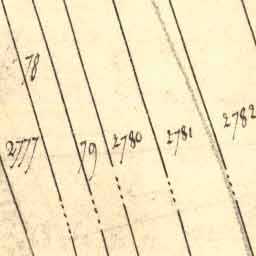 78
2777
79
2780
2781
2782